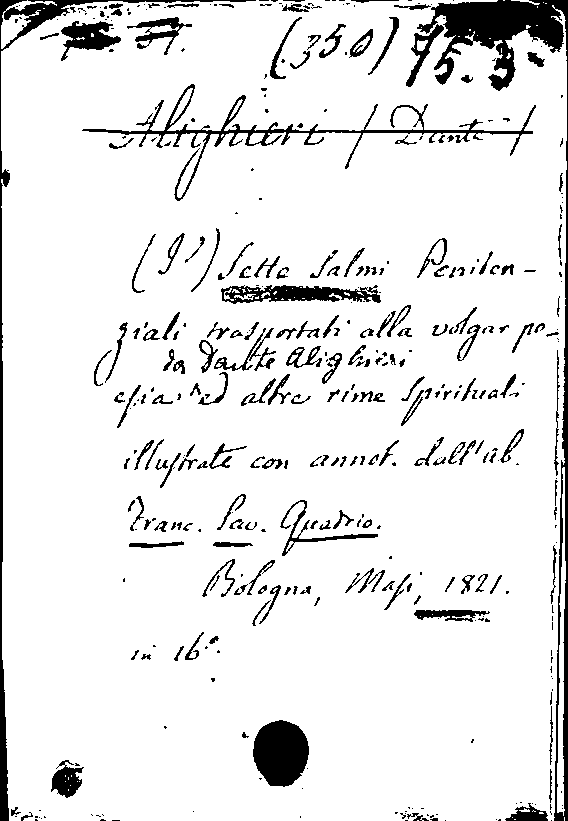 51.
(350) 75.3
Alighieri / Dante /
(I') Sette Salmi Peniten-
ziali trasportati alla volgar po-
da Dante Alighieri
esia ed altre rime spirituali
illustrate con annot. dall'ab.
Franc. Sav. Quadrio.
Bologna, Masi, 1821.
in 16º.